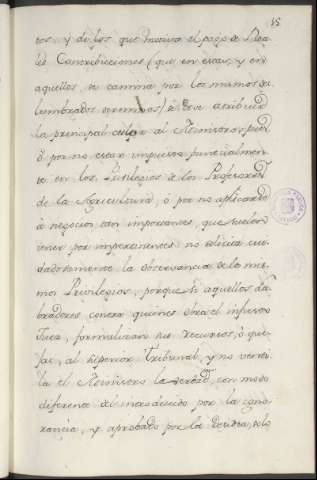 15
tos, y de los que motiva el pago de Rea
les Contribucciones (que en estas, y en
aquellos, se camina por los mismos de
lumbrados terminos) se debe atribuir
la principal culpa al Ministro, pues
ô por no estar impuesto puntualmen-
te en los Privilegios de los Profesores
de la Agricultura, ô por no aplicarse
à negocios tan importantes, que suelen
tener por impertinentes no solicita cui-
dadosamente la observancia de los mis-
mos Privilegios, porque si aquellos La
bradores contra quienes obra el inferior
Juez, formalizan sus recursos, ô que
jas, al superior tribunal, y no venti-
la el Ministro la verdad, con modo
diferente al introducido por la igno-
rancia, y aprobado por la desidia, solo